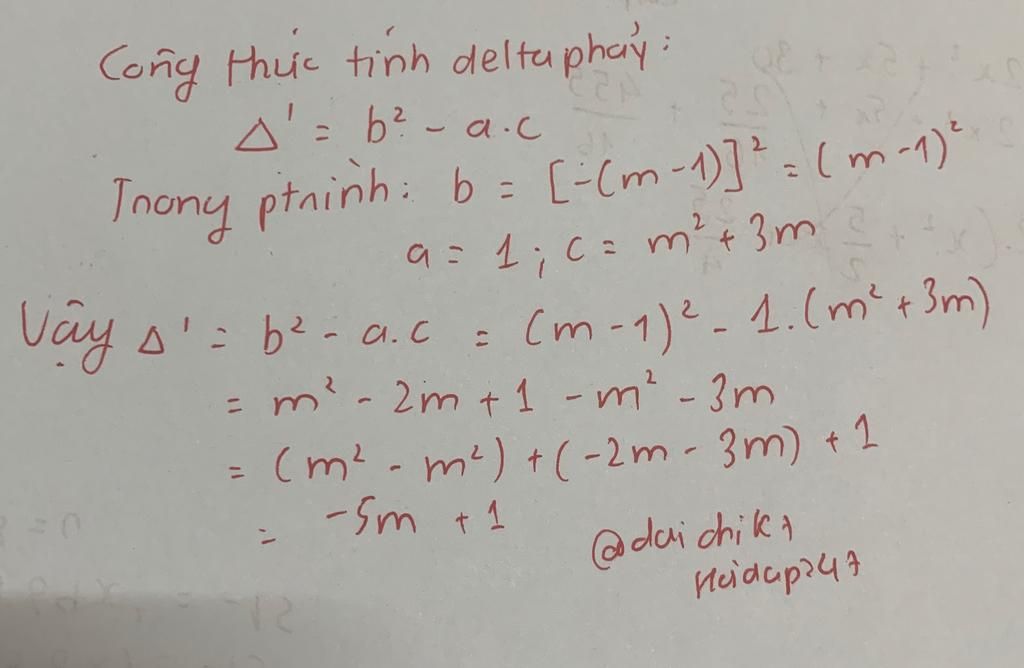 Công thức tính delta phẩy:
Δ' = b² - a.c
Trong ptrình: b = [-(m-1)]² = (m-1)²
a = 1; c = m² + 3m
Vậy Δ' = b² - a.c = (m-1)² - 1.(m² + 3m)
= m² - 2m + 1 - m² - 3m
= (m² - m²) + (-2m - 3m) + 1
= -5m + 1
@daichik7
hoidap247